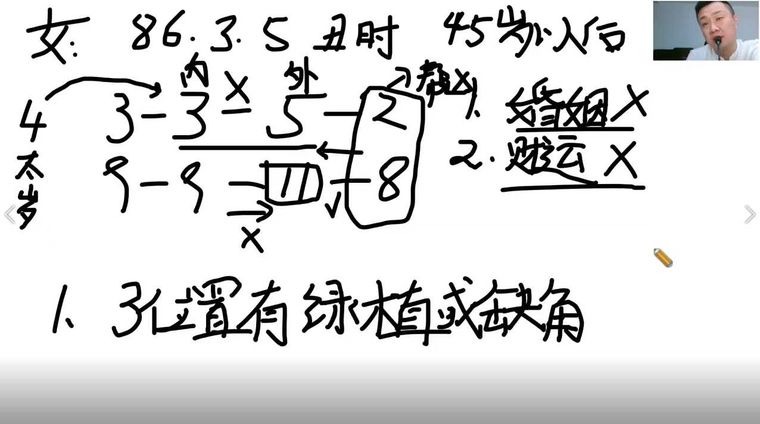 女: 86.3.5 丑时 45岁以后
内 X 外 帮X
4 3-3-5-2 1. 婚姻X
太岁 9-9-11-8 2. 财运 X
X
1、3位置有绿植或缺角